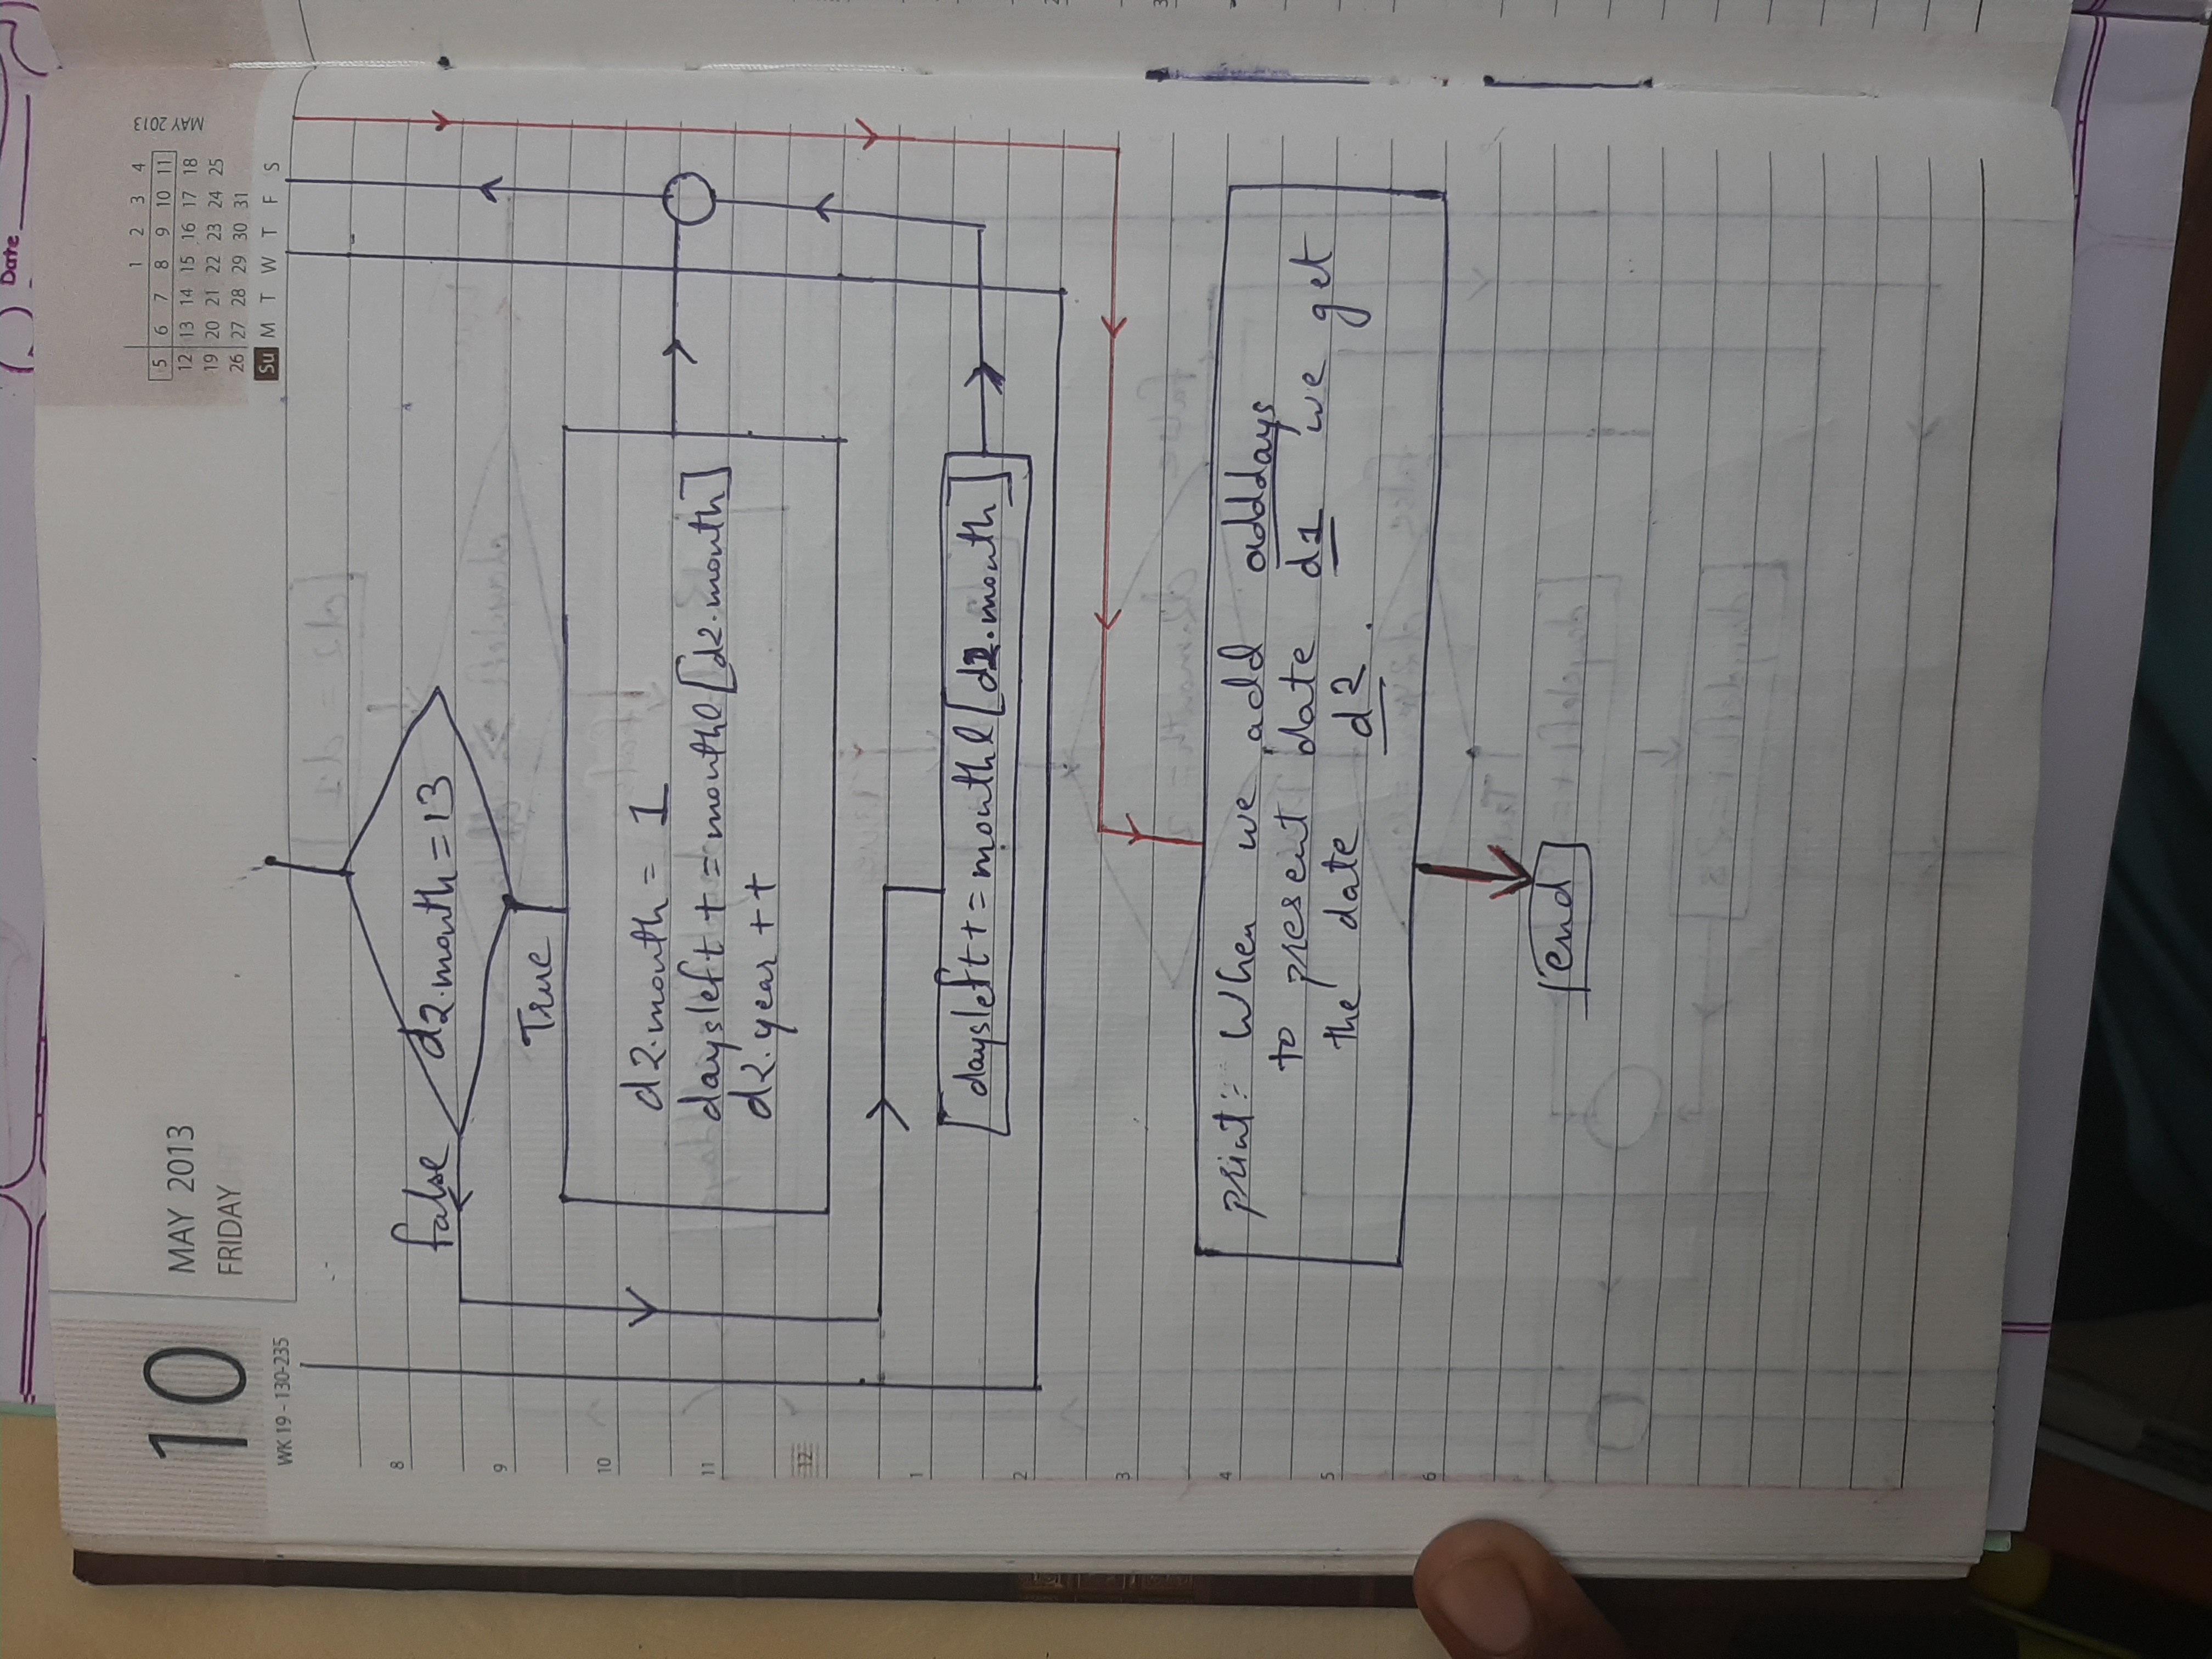 Date
10
MAY 2013
FRIDAY
WK 19 - 130-235
1 2 3 4
5 6 7 8 9 10 11
12 13 14 15 16 17 18
19 20 21 22 23 24 25
26 27 28 29 30 31
Su M T W T F S
MAY 2013
8
false
d2.month = 13
9
True
10
d2.month = 1
11
daysleft + = monthl [d2.month]
d2.year ++
12
1
daysleft + = monthl [d2.month]
2
3
4
print:- When we add adddays
to present date d1 we get
5
the date d2.
6
end